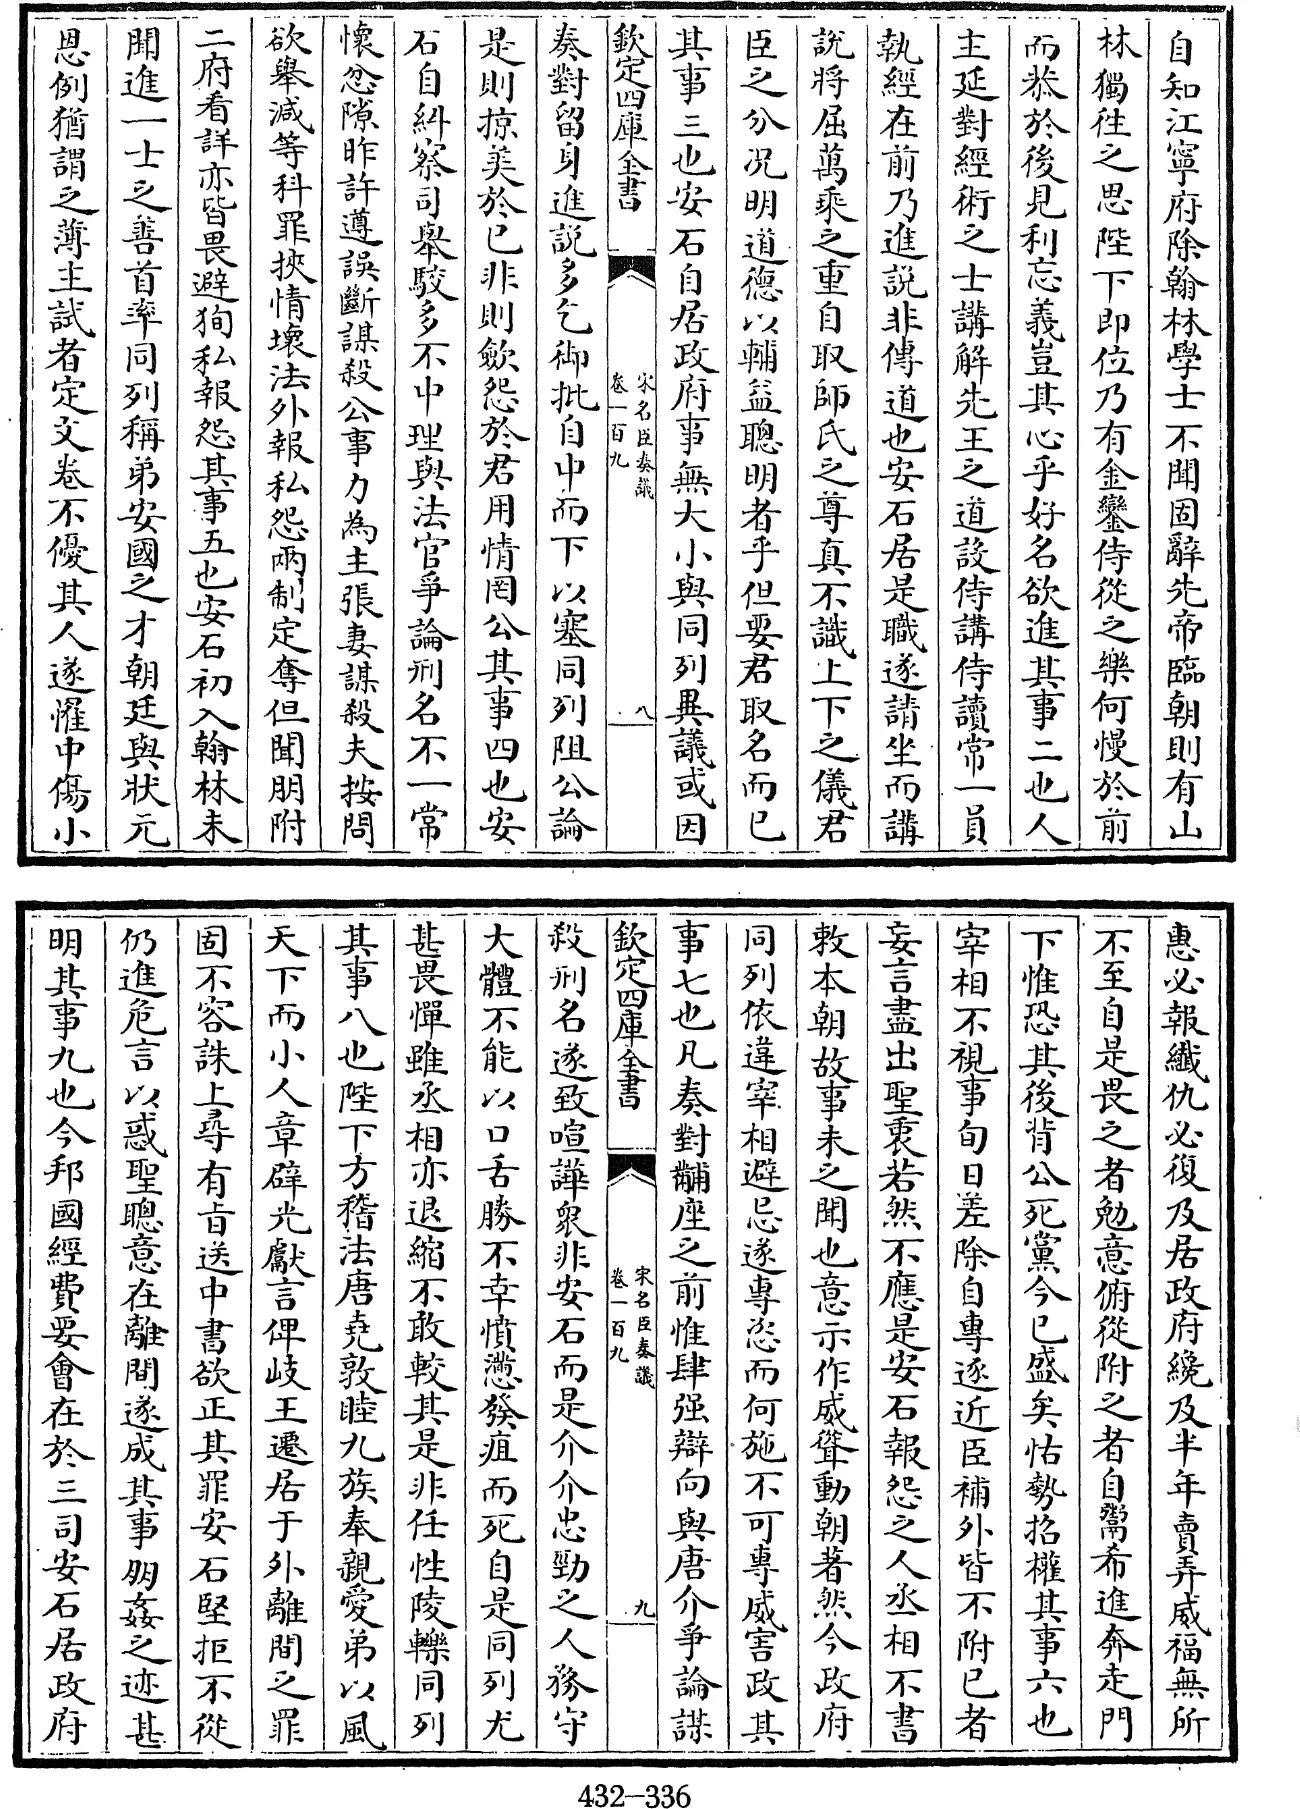 自知江寧府除翰林學士不聞固辭先帝臨朝則有山
林獨往之思陛下即位乃有金鑾侍從之樂何慢於前
而恭於後見利忘義豈其心乎好名欲進其事二也人
主延對經術之士講解先王之道設侍講侍讀常一員
執經在前乃進說非傳道也安石居是職遂請坐而講
說將屈萬乘之重自取師氏之尊真不識上下之儀君
臣之分况明道德以輔益聰明者乎但要君取名而已
其事三也安石自居政府事無大小與同列異議或因
欽定四庫全書
宋名臣奏議
卷一百九
八
奏對留身進說多乞御批自中而下以塞同列阻公論
是則掠美於已非則歛怨於君用情罔公其事四也安
石自糾察司舉駁多不中理與法官爭論刑名不一常
懷忿隙昨許遵誤斷謀殺公事力為主張妻謀殺夫按問
欲舉減等科罪挾情壞法外報私怨兩制定奪但聞朋附
二府看詳亦皆畏避狥私報怨其事五也安石初入翰林未
聞進一士之善首率同列稱弟安國之才朝廷與狀元
恩例猶謂之薄主試者定文卷不優其人遂懼中傷小
惠必報纖仇必復及居政府纔及半年賣弄威福無所
不至自是畏之者勉意俯從附之者自鬻希進奔走門
下惟恐其後背公死黨今已盛矣怙勢招權其事六也
宰相不視事旬日差除自專逐近臣補外皆不附已者
妄言盡出聖衷若然不應是安石報怨之人丞相不書
敕本朝故事未之聞也意示作威聳動朝著然今政府
同列依違宰相避忌遂專恣而何施不可專威害政其
事七也凡奏對黼座之前惟肆强辯向與唐介爭論謀
欽定四庫全書
宋名臣奏議
卷一百九
九
殺刑名遂致喧譁衆非安石而是介介忠勁之人務守
大體不能以口舌勝不幸憤懣發疽而死自是同列尤
甚畏憚雖丞相亦退縮不敢較其是非任性陵轢同列
其事八也陛下方稽法唐堯敦睦九族奉親愛弟以風
天下而小人章辟光獻言俾岐王遷居于外離間之罪
固不容誅上尋有旨送中書欲正其罪安石堅拒不從
仍進危言以惑聖聰意在離間遂成其事朋姦之迹甚
明其事九也今邦國經費要會在於三司安石居政府
432-336